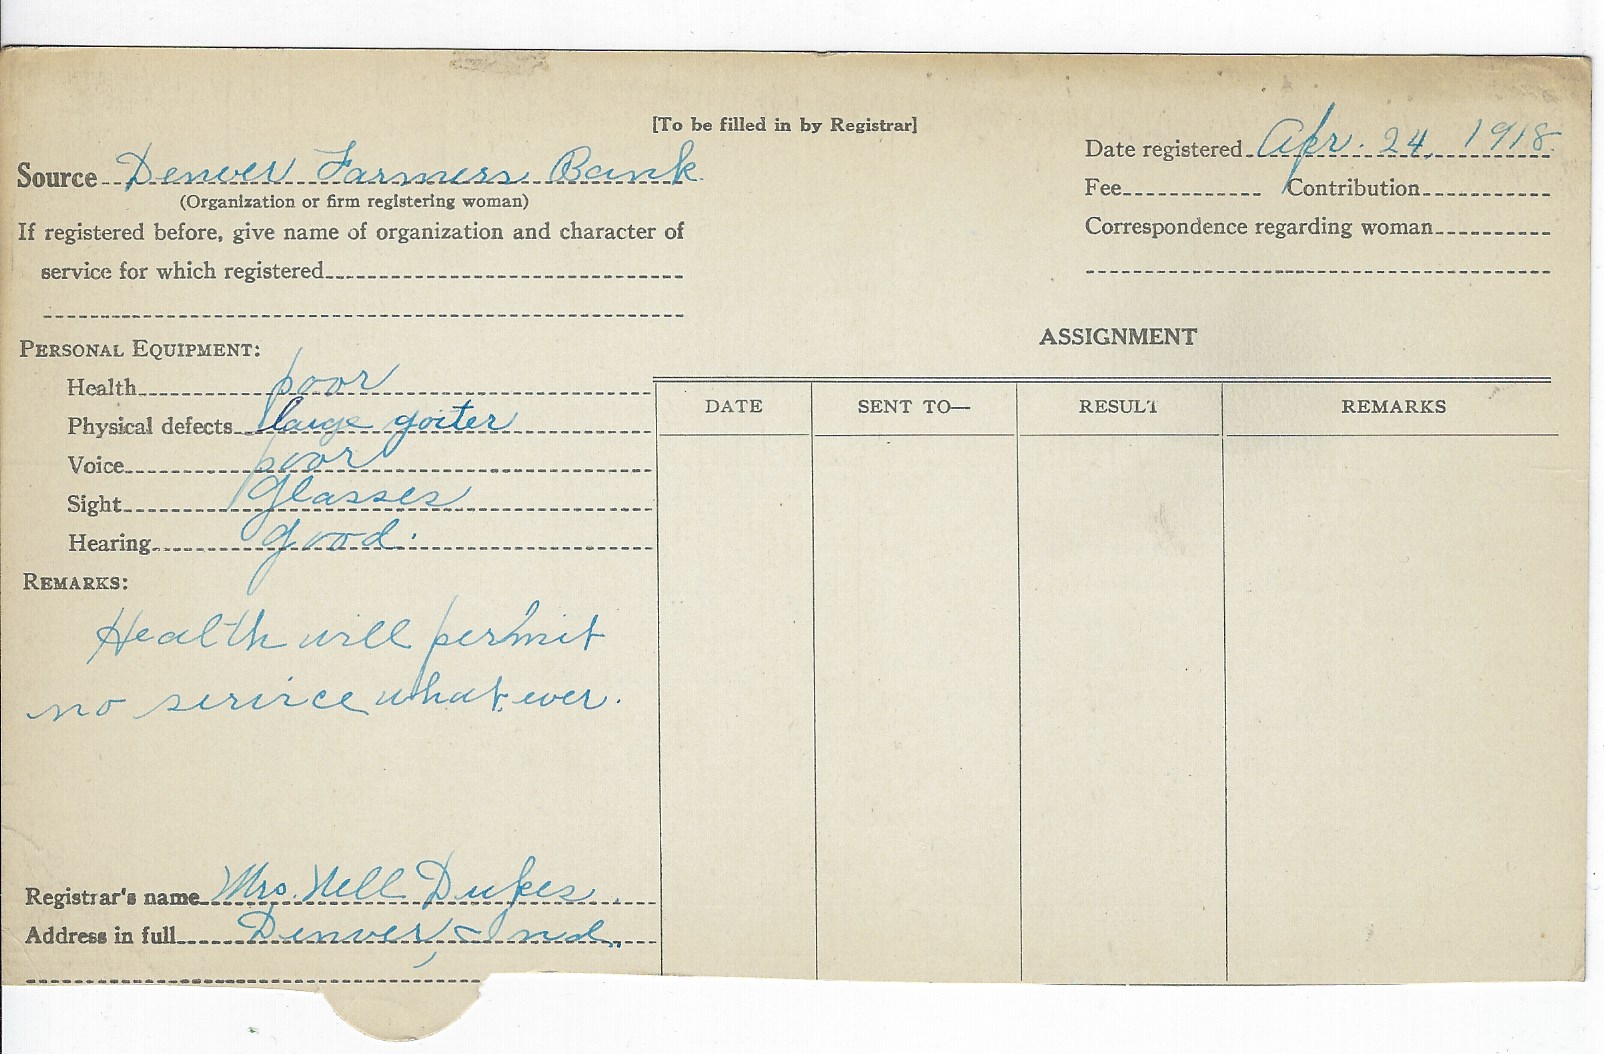 [To be filled in by Registrar]
Source Denver Farmers Bank
(Organization or firm registering woman)
If registered before, give name of organization and character of
service for which registered
Date registered Apr. 24, 1918.
Fee Contribution
Correspondence regarding woman
PERSONAL EQUIPMENT:
Health poor
Physical defects large goiter
Voice poor
Sight glasses
Hearing good.
REMARKS:
Health will permit
no serivce whatever.
ASSIGNMENT
DATE SENT TO— RESULT REMARKS
Registrar's name Mrs. Nell Dukes.
Address in full Denver, Ind.